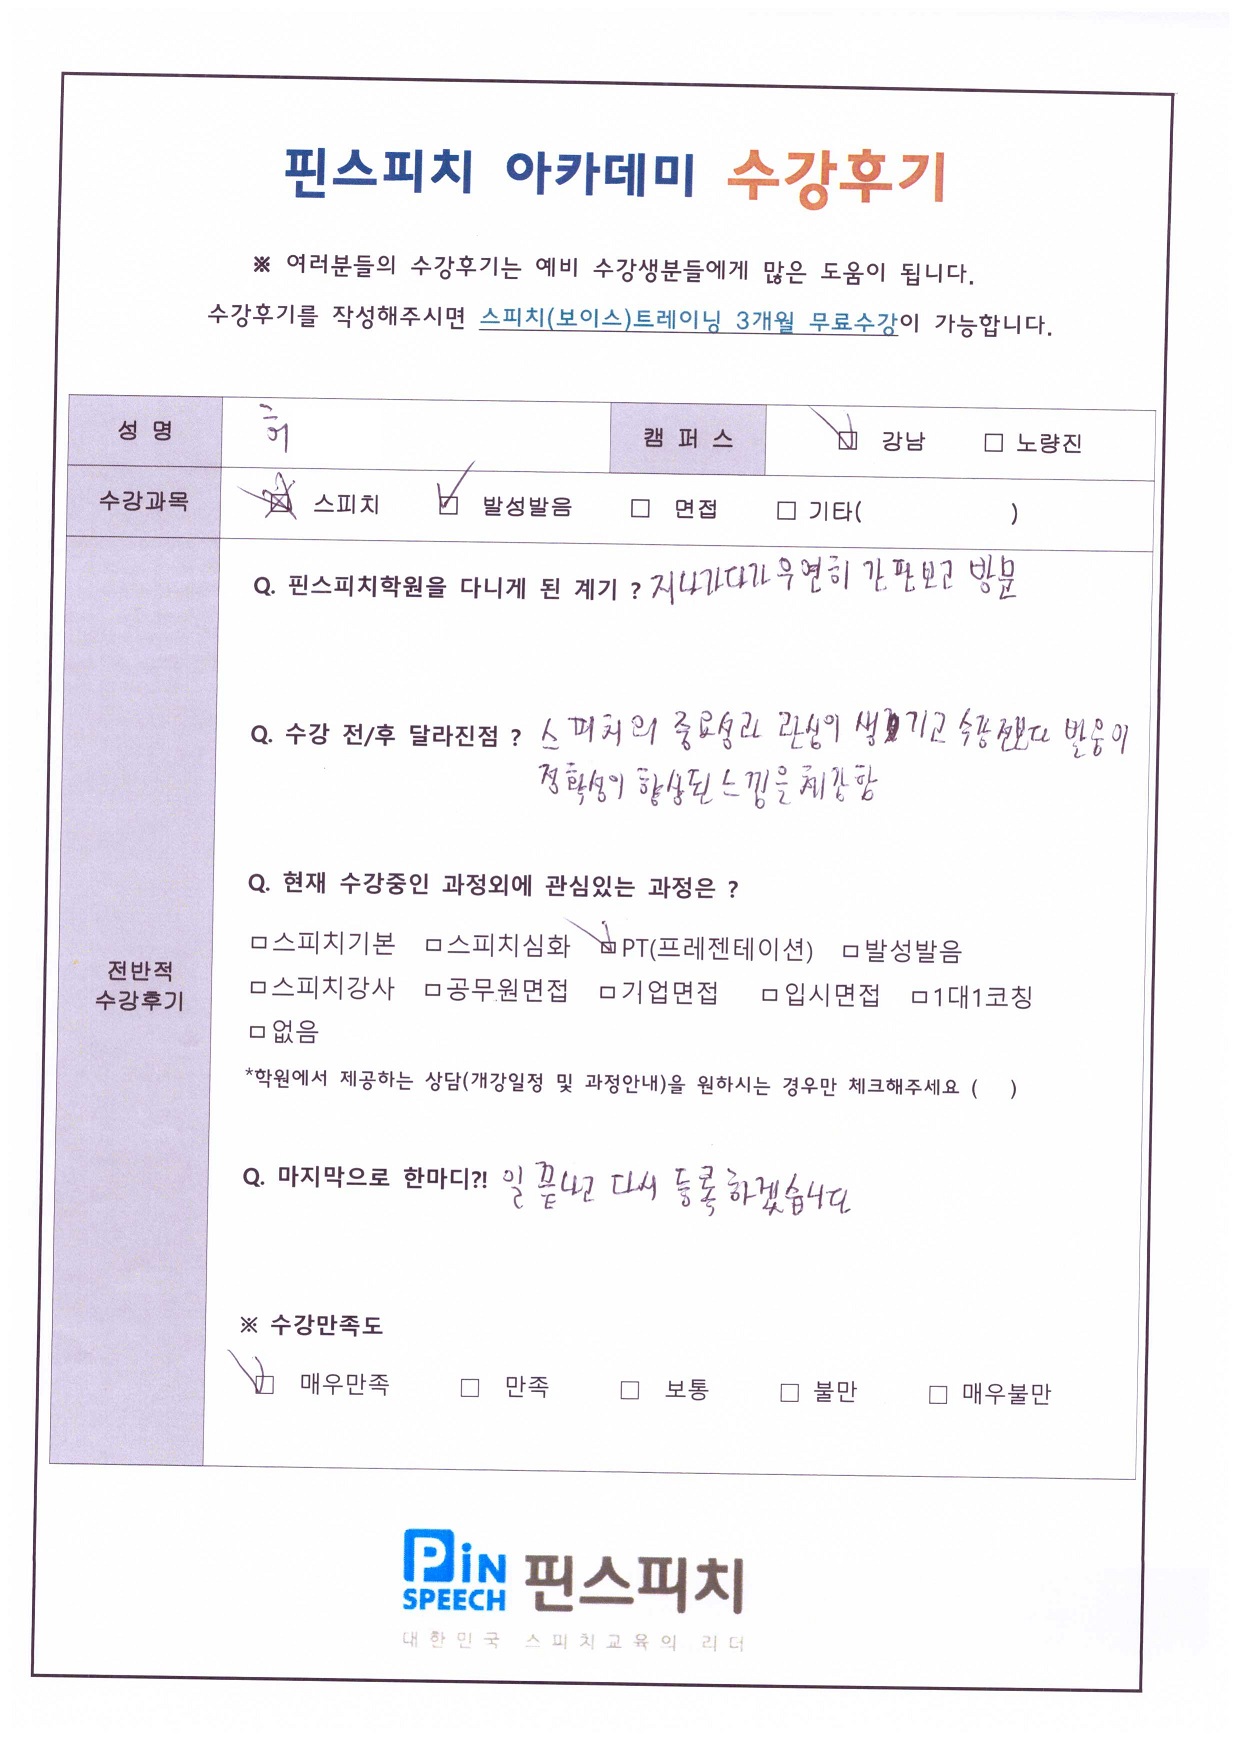 핀스피치 아카데미 수강후기
※ 여러분들의 수강후기는 예비 수강생분들에게 많은 도움이 됩니다.
수강후기를 작성해주시면 스피치(보이스)트레이닝 3개월 무료수강이 가능합니다.
성 명 허 캠 퍼 스 ☑ 강남 □ 노량진
수강과목 스피치 ☑ 발성발음 □ 면접 □ 기타( )
Q. 핀스피치학원을 다니게 된 계기 ? 지나가다가 우연히 간판보고 방문
Q. 수강 전/후 달라진점 ? 스피치의 중요성과 관심이 생기고 수강전보다 발음이
정확성이 향상된 느낌을 체감함
Q. 현재 수강중인 과정외에 관심있는 과정은 ?
□스피치기본 □스피치심화 ☑PT(프레젠테이션) □발성발음
전반적
수강후기
□스피치강사 □공무원면접 □기업면접 □입시면접 □1대1코칭
□없음
*학원에서 제공하는 상담(개강일정 및 과정안내)을 원하시는 경우만 체크해주세요 ( )
Q. 마지막으로 한마디?! 일 끝나고 다시 등록하겠습니다
※ 수강만족도
☑ 매우만족 □ 만족 □ 보통 □ 불만 □ 매우불만
PiN
SPEECH
핀스피치
대한민국 스피치교육의 리더